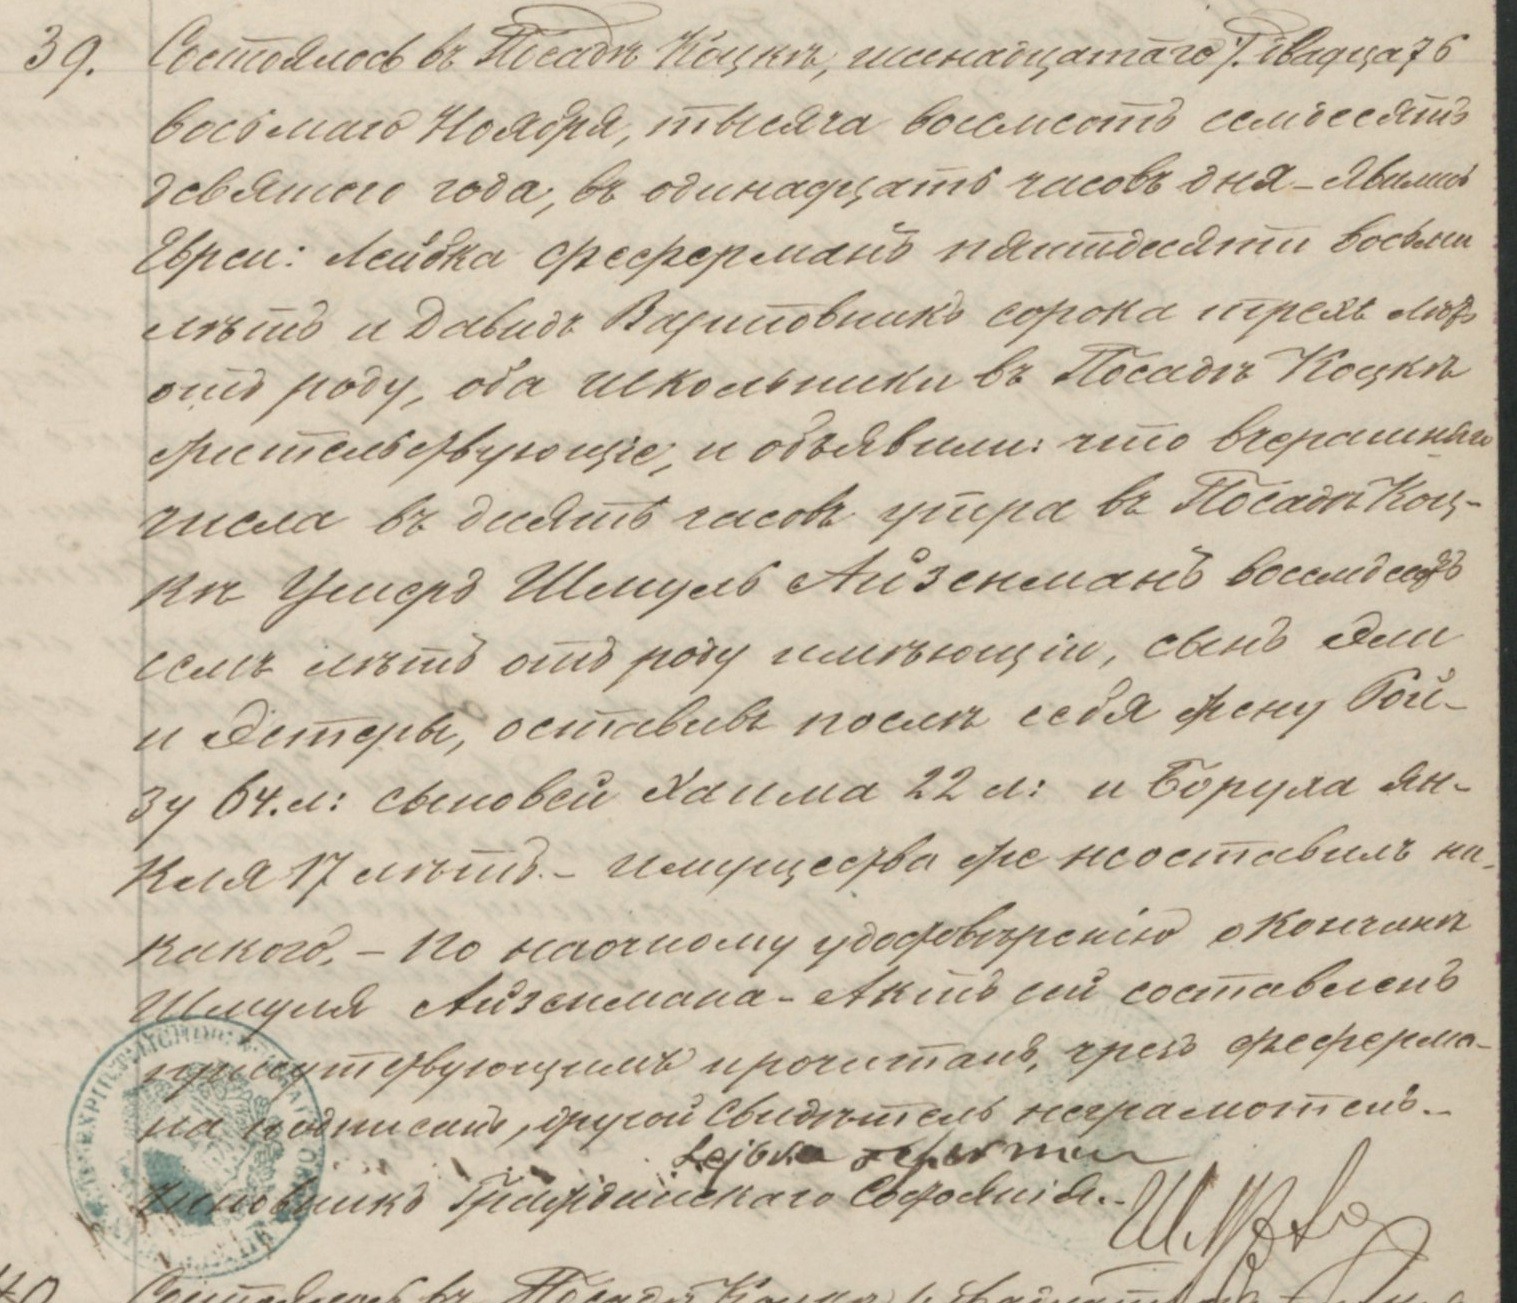 39. Состоялось въ Посадѣ Коцкѣ, шеснадцатаго /: двадцать
восьмаго Ноября, тысяча восемсотъ семдесятъ
девятого года, въ одинадцать часовъ дня – Явились
Евреи: Лейбка Феферманъ пятидесяти восьми
лѣтъ и Давидъ Варштовникъ сорока трехъ лѣтъ
отъ роду, оба школьники въ Посадѣ Коцкѣ
жительствующіе, и объявили: что вчерашняго
числа въ десять часовъ утра въ Посадѣ Коц-
кѣ Умеръ Шмуль Айзенманъ восемдесятъ
семъ лѣтъ отъ роду имѣющій, сынъ Эли
и Эстеры, оставивъ послѣ себя жену Рой-
зу 64. л: сыновей Хаима 22 л: и Боруха Ян-
келя 17 лѣтъ. – Имущества же неоставилъ ни-
какого. – По наочному удостовѣренію о кончинѣ
Шмуля Айзенмана – Актъ сей составленъ
присутствующимъ прочитанъ, чрезъ Феферма-
на подписанъ, другой Свидѣтель неграмотенъ. –
Lejbka Feferman
Чиновникъ Гражданскаго Состоянія. –
40 Состоялось въ Посадѣ Коцкѣ